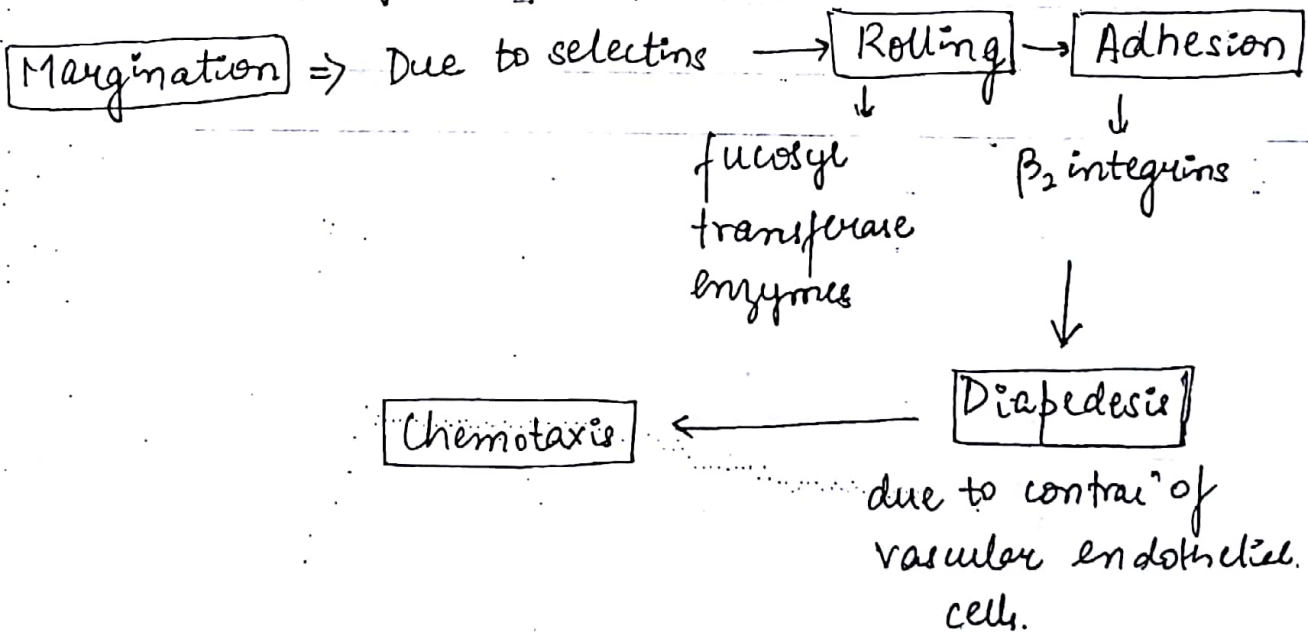 Margination => Due to selectins → Rolling → Adhesion
↓ ↓
fucosyl
transferase
enzymes
β₂ integrins
↓
Diapedesis
due to contracⁿ of
vascular endothelial.
cells.
← Chemotaxis